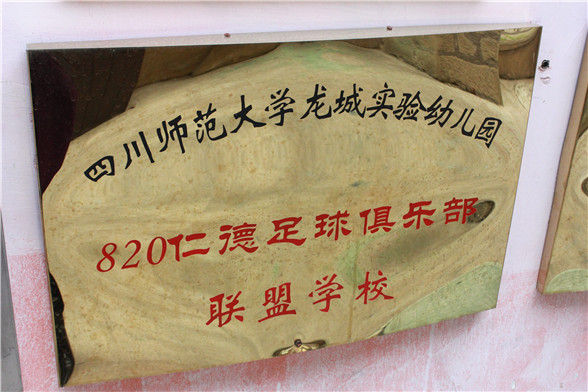 四川师范大学龙城实验幼儿园
820仁德足球俱乐部
联盟学校